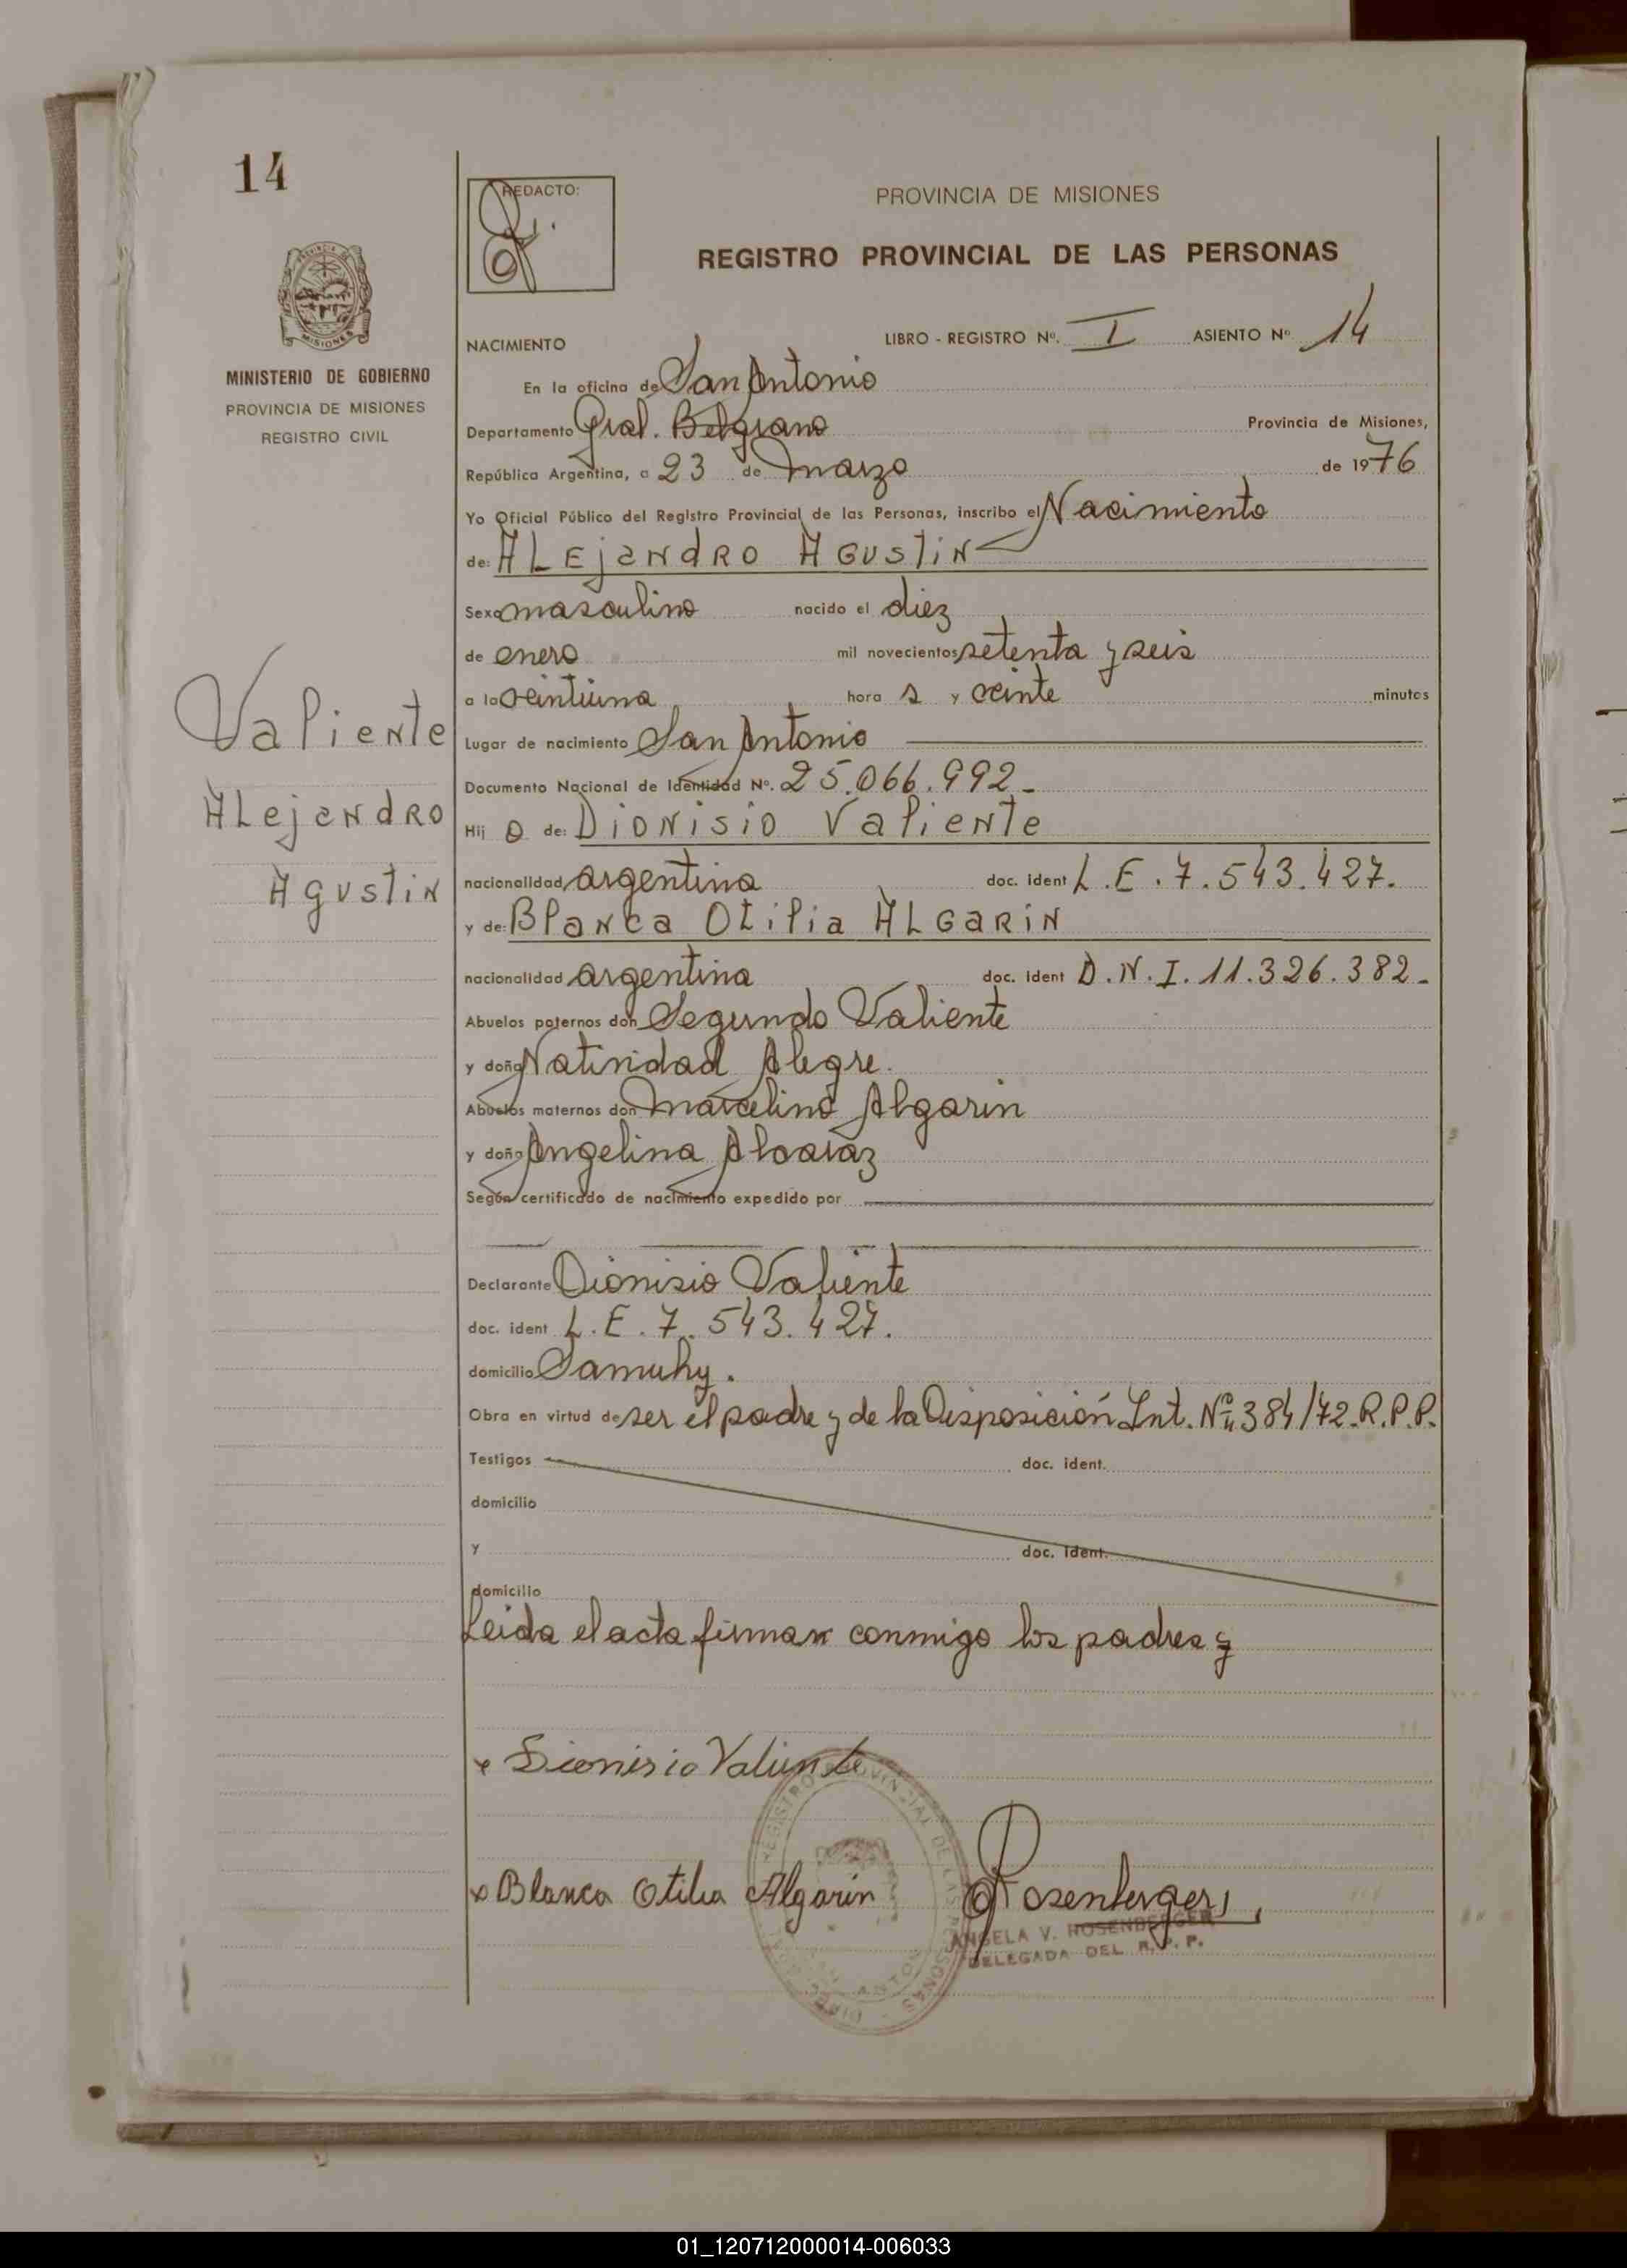 14
REDACTO:
PROVINCIA DE MISIONES
REGISTRO PROVINCIAL DE LAS PERSONAS
MISIONES
MINISTERIO DE GOBIERNO
PROVINCIA DE MISIONES
REGISTRO CIVIL
NACIMIENTO LIBRO - REGISTRO Nº. I ASIENTO Nº 14
En la oficina de San Antonio
Departamento Gral. Belgrano Provincia de Misiones,
República Argentina, a 23 de marzo de 1976
Yo Oficial Público del Registro Provincial de las Personas, inscribo el Nacimiento
de: ALEjandRO AGUStiN
Sexo masculino nacido el diez
de enero mil novecientos setenta y seis
a la veintiuna hora s y veinte minutos
Valiente
Alejandro
Agustin
Lugar de nacimiento San Antonio
Documento Nacional de Identidad Nº. 25.066.992-
Hij o de: Dionisio Valiente
nacionalidad argentina doc. ident L.E. 7.543.427.
y de: Blanca Otilia ALGARIN
nacionalidad argentina doc. ident D.N.I. 11.326.382-
Abuelos paternos don Segundo Valiente
y doña Natividad Alegre.
Abuelos maternos don Marcelino Algarin
y doña Angelina Alcaraz
Según certificado de nacimiento expedido por
Declarante Dionisio Valiente
doc. ident L.E. 7.543.427.
domicilio Samuhy.
Obra en virtud de ser el padre y de la Disposición Int. Nº 384/72.R.P.P.
Testigos doc. ident.
domicilio
y doc. ident.
domicilio
Leida el acta firman conmigo los padres y
x Dionisio Valiente
x Blanca Otilia Algarin Rosenberger
REGISTRO PROVINCIAL DE LAS PERSONAS
ANGELA V. ROSENBERGER
DELEGADA DEL R. P. P.
01_120712000014-006033